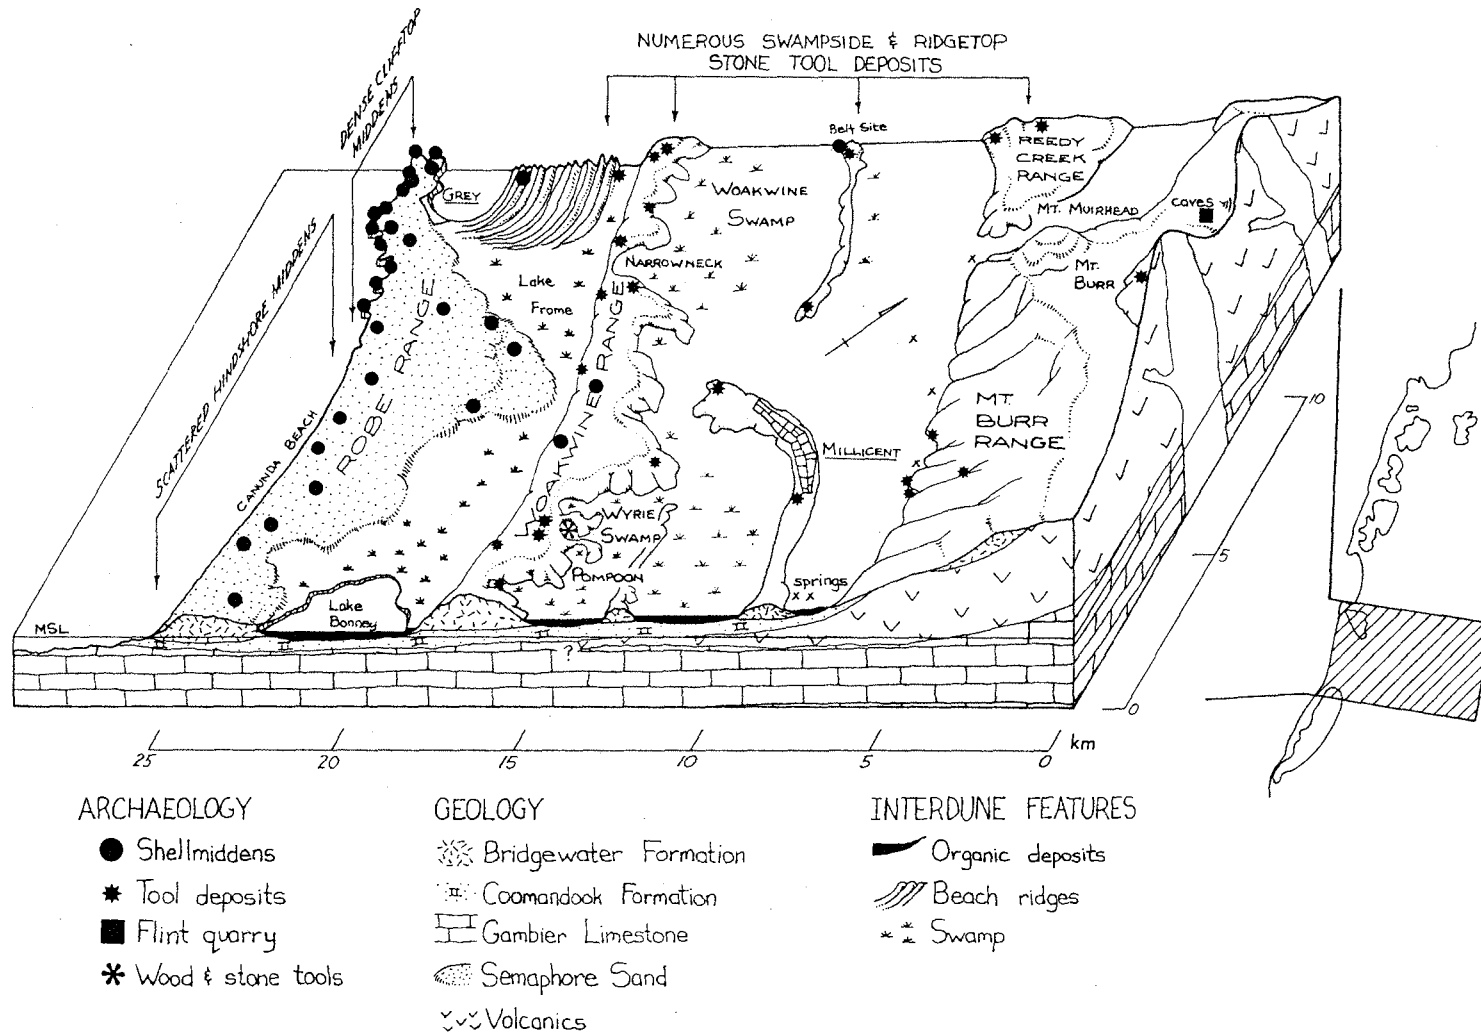 NUMEROUS SWAMPSIDE & RIDGETOP
STONE TOOL DEPOSITS
DENSE CLIFFTOP
MIDDENS
SCATTERED HINDSHORE MIDDENS
Belt Site
REEDY
CREEK
RANGE
GREY
WOAKWINE
SWAMP
MT. MUIRHEAD
caves
NARROWNECK
MT.
BURR
Lake
Frome
ROBE RANGE
WOAKWINE RANGE
CANUNDA BEACH
MT.
BURR
RANGE
MILLICENT
WYRIE
SWAMP
POMPOON
springs
Lake
Bonney
MSL
?
10
5
0
25
20
15
10
5
0
km
ARCHAEOLOGY
Shellmiddens
Tool deposits
Flint quarry
Wood & stone tools
GEOLOGY
Bridgewater Formation
Coomandook Formation
Gambier Limestone
Semaphore Sand
Volcanics
INTERDUNE FEATURES
Organic deposits
Beach ridges
Swamp